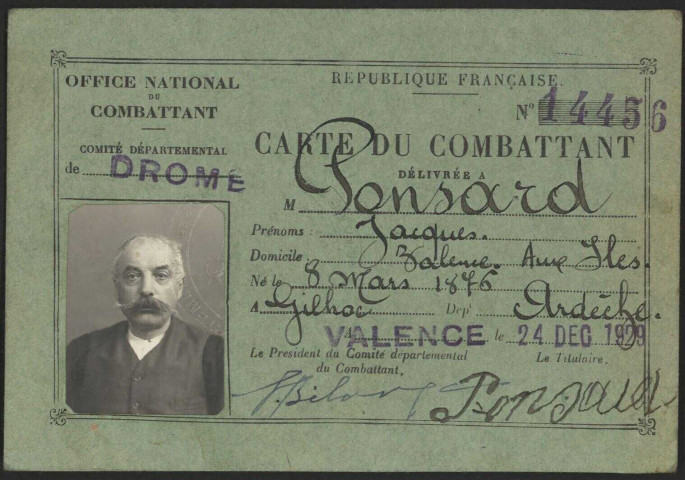 OFFICE NATIONAL
DU
COMBATTANT
COMITÉ DÉPARTEMENTAL
de DROME
REPUBLIQUE FRANÇAISE.
N° 14456
CARTE DU COMBATTANT
DÉLIVRÉE A
M Ponsard
Prénoms : Jacques.
Domicile Valence. Aux Iles.
Né le 8 Mars 1876
A Gilhoc Dept Ardèche.
A VALENCE le 24 DEC 1929
Le President du Comité départemental
du Combattant,
Le Titulaire,
Ponsard